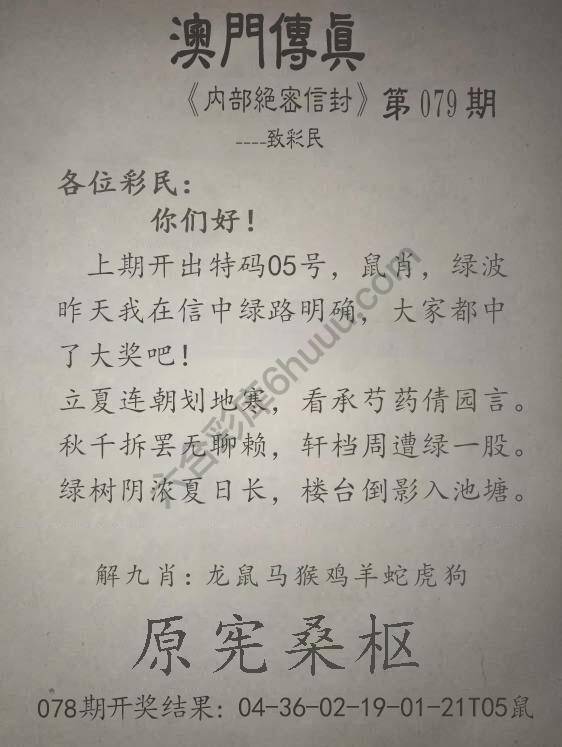 澳門傳眞
《内部絕密信封》第079期
----致彩民
各位彩民：
你们好！
上期开出特码05号，鼠肖，绿波
昨天我在信中绿路明确，大家都中
了大奖吧！
立夏连朝划地寒，看承芍药倩园言。
秋千拆罢无聊赖，轩档周遭绿一股。
绿树阴浓夏日长，楼台倒影入池塘。
六合彩库6huuu.com
解九肖：龙鼠马猴鸡羊蛇虎狗
原宪桑枢
078期开奖结果：04-36-02-19-01-21T05鼠